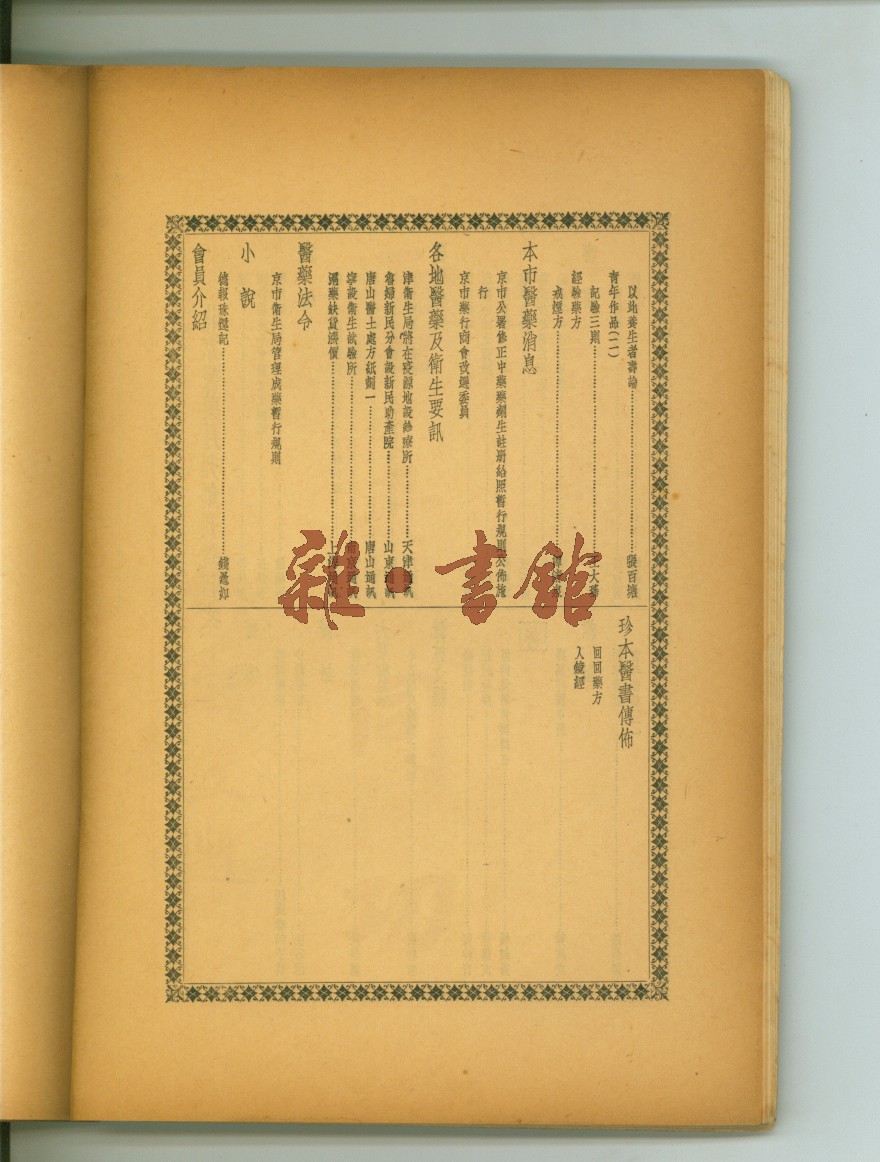 以此養生者壽論
青年作品(二)
記驗三則
經驗藥方
戒煙方
本市醫藥消息
京市公署修正中藥藥劑生註册給照暫行規則公佈施
行
京市藥行商會改選委員
各地醫藥及衛生要訊
津衛生局將在疫源地設診療所 天津通訊
魯婦新民分會設新民助產院 山東通訊
唐山醫士處方紙劃一 唐山通訊
寧設衛生試驗所
滬藥缺貨漲價 上海通訊
醫藥法令
京市衛生局管理成藥暫行規則
小說
還記
會員介紹
珍本醫書傳佈
回回藥方
入鏡經
雜·書館